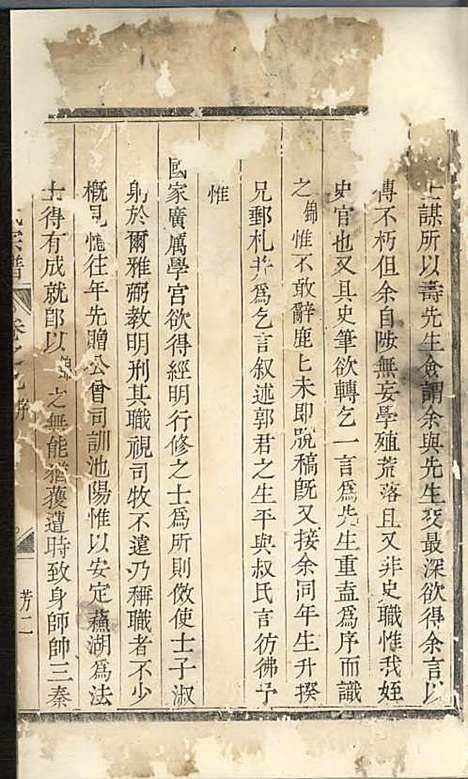 士謀所以壽先生僉謂余與先生交最深欲得余言以
傳不朽但余自陟無妄學殖荒落且又非史職惟我姪
史官也又具史筆欲轉乞一言為先生重壺為序而識
之錦惟不敢辭鹿七未即脫稿旣又接余同年生升揆
兄郵札并為乞言叙述郭君之生平與叔氏言彷彿予
惟
國家廣厲學宮欲得經明行修之士為所則傚使士子淑
躬於爾雅弼教明刑其職視司牧不遑乃稱職者不少
概見憶往年先贈公曾司訓池陽惟以安定蘇湖為法
士得有成就卽以錦之無能猶獲遭時致身師帥三秦
氏宗譜
卷之
序
芳二